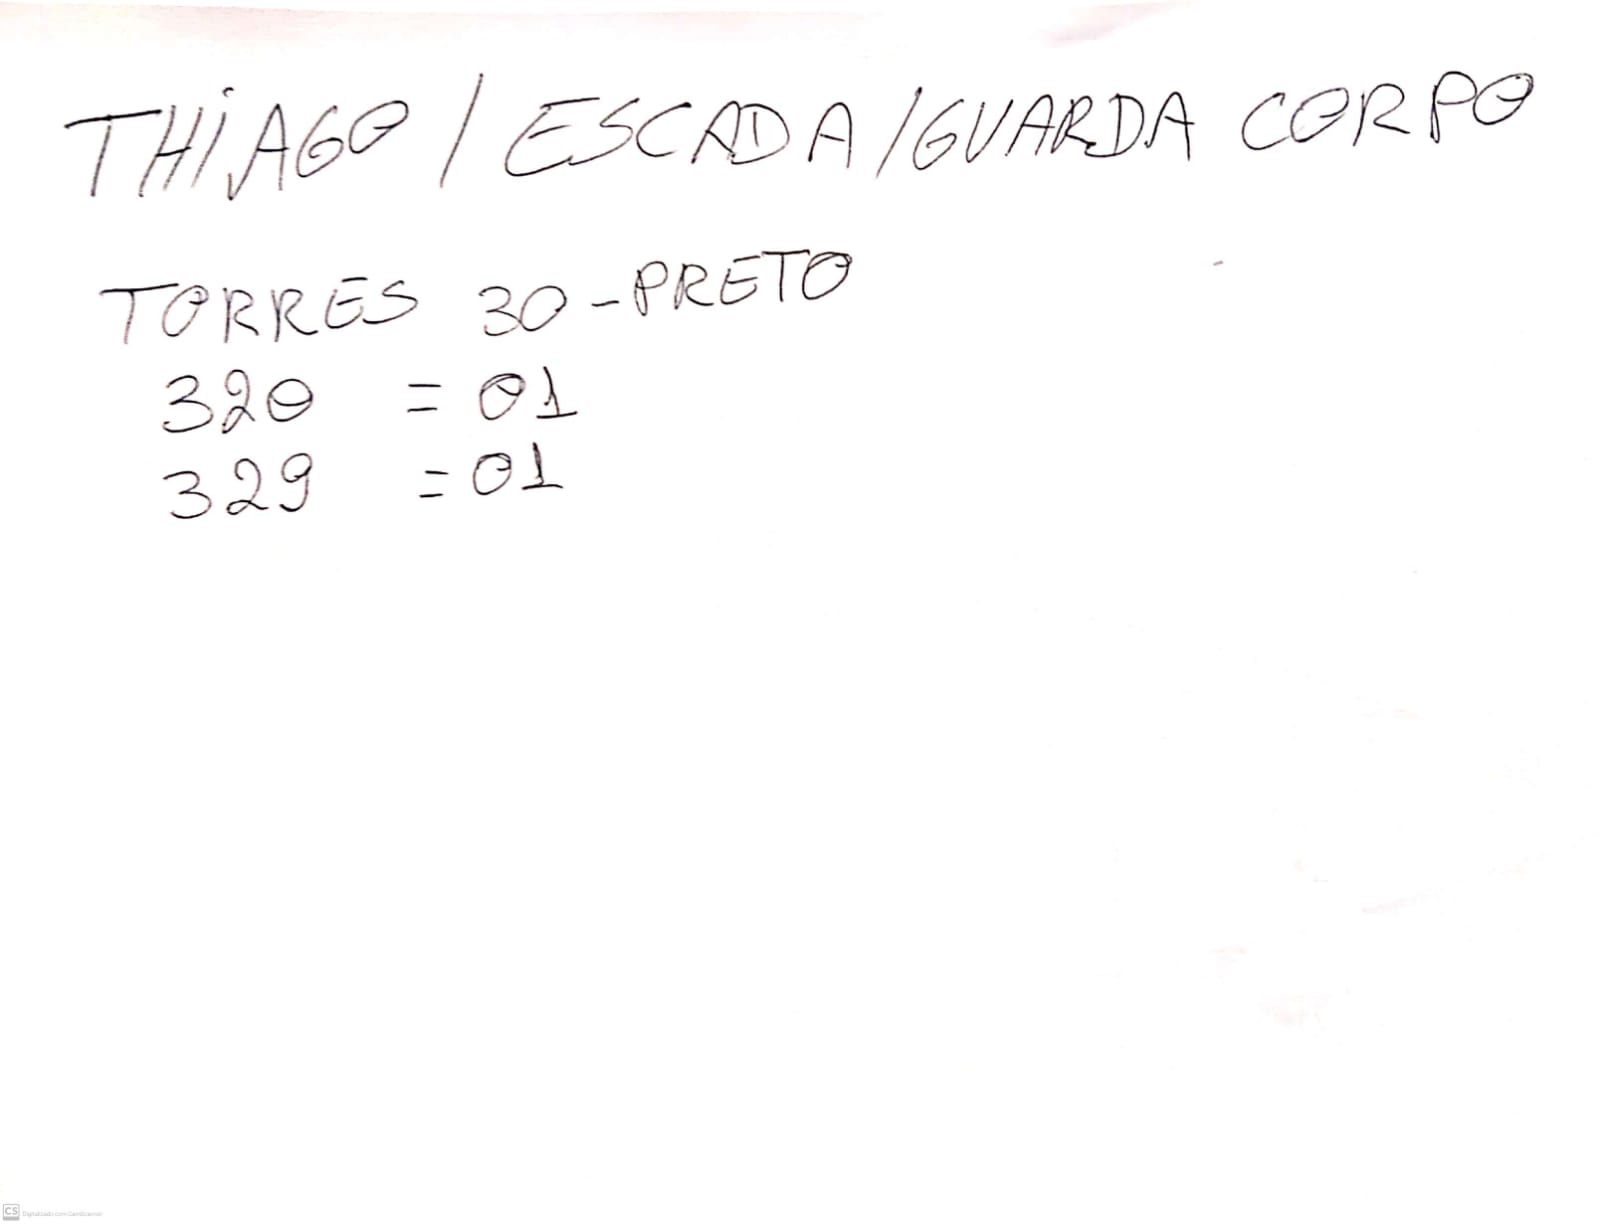 THiAGO / ESCADA / GUARDA CORPO
TORRES 30 - PRETO
320 = 01
329 = 01
CS Digitalizado com CamScanner